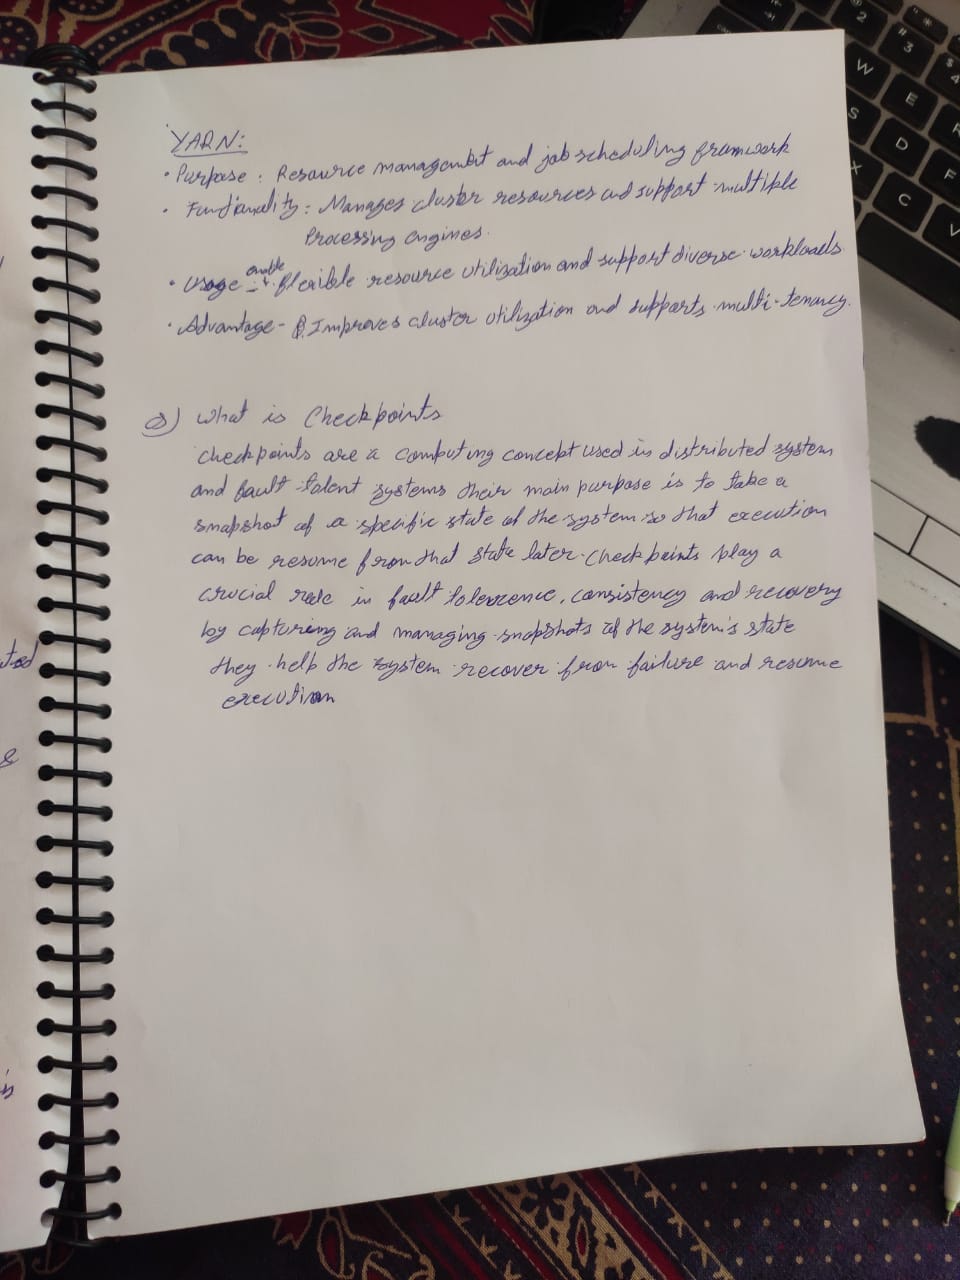 YARN:
• Purpose: Resource management and job scheduling framwork
• Functionality: Manages cluster resources and support multiple
Processing engines.
• Usage :- enable flexible resource utilization and support diverse workloads.
• Advantage - Improves cluster utilization and supports multi-tenancy.
Q) What is Checkpoints
checkpoints are a computing concept used in distributed system
and fault tolent systems their main purpose is to take a
snapshot of a specific state of the system so that execution
can be resume from that state later. Checkpoints play a
crucial role in fault tolerence, consistency and recovery
by capturing and managing snapshots of the system's state
they help the system recover from failure and resume
execution